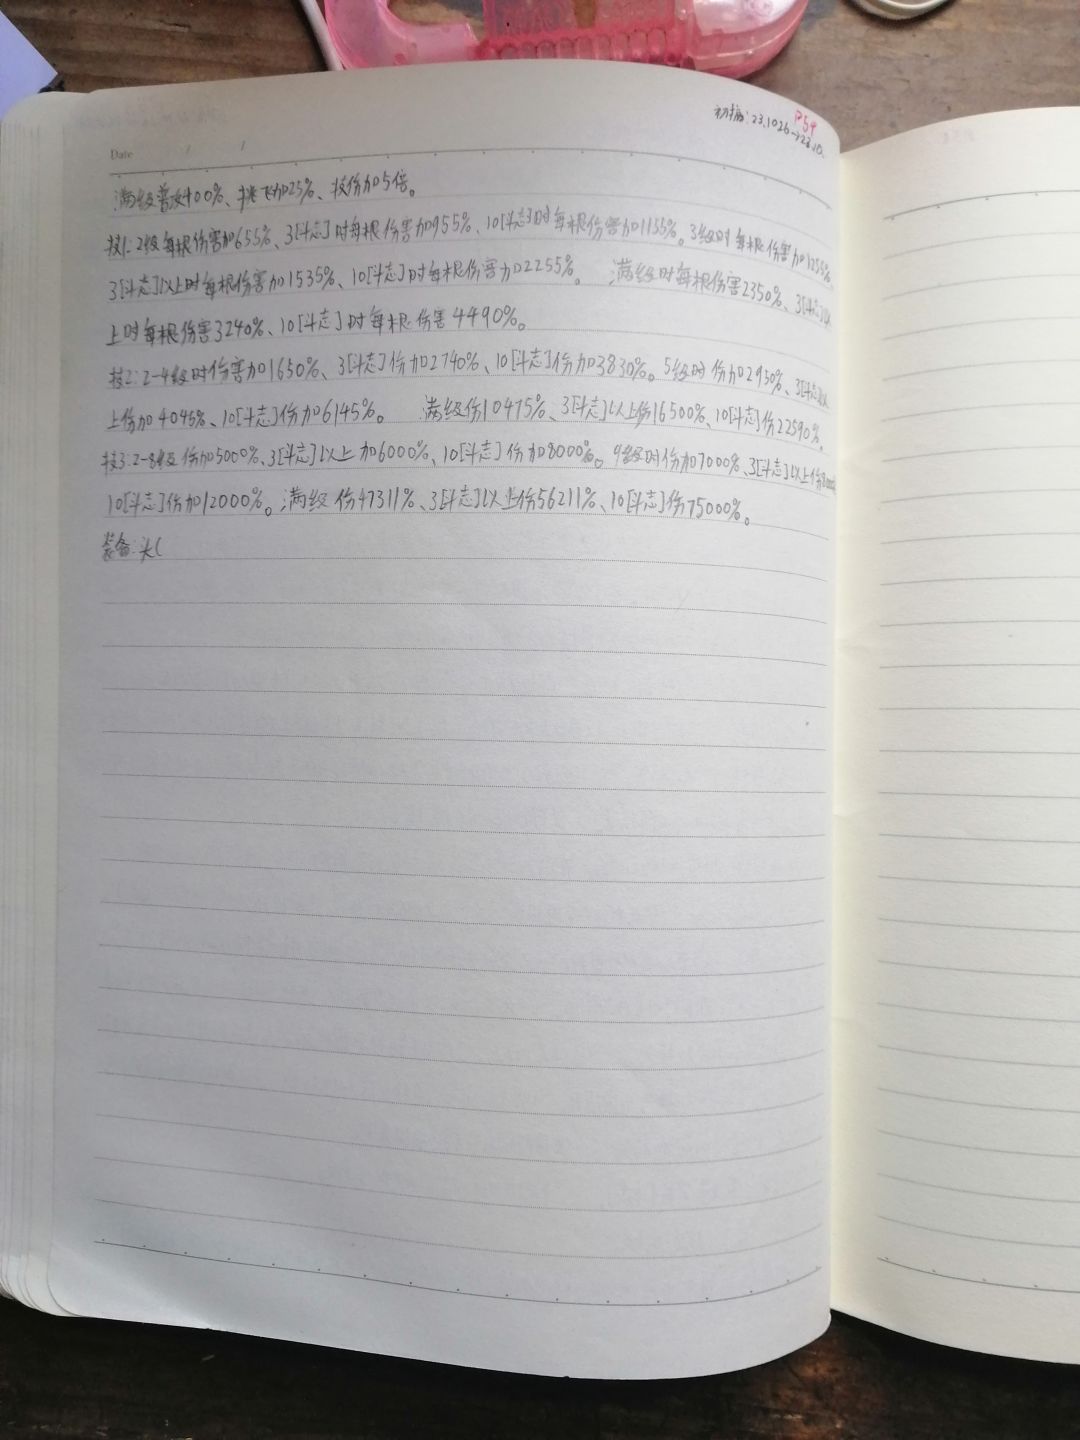 P54
初稿:23.1026-
Date / /
满级普攻400%、挑飞加25%、技伤加5倍。
技1:2级每根伤害加655%、3[斗志]时每根伤害加955%、10[斗志]时每根伤害加1155%。3级时每根伤害加1255%、
3[斗志]以上时每根伤害加1535%、10[斗志]时每根伤害加2255%。 满级时每根伤害2350%、3[斗志]以
上时每根伤害3240%、10[斗志]时每根伤害4490%。
技2:2-4级时伤害加1650%、3[斗志]伤加2740%、10[斗志]伤加3830%。5级时伤加2950%、3[斗志]以
上伤加4045%、10[斗志]伤加6145%。 满级伤10475%、3[斗志]以上伤16500%、10[斗志]伤22590%。
技3:2-8级伤加5000%、3[斗志]以上加6000%、10[斗志]伤加8000%。9级时伤加7000%、3[斗志]以上伤
10[斗志]伤加12000%。满级伤47311%、3[斗志]以上伤56211%、10[斗志]伤75000%。
装备: